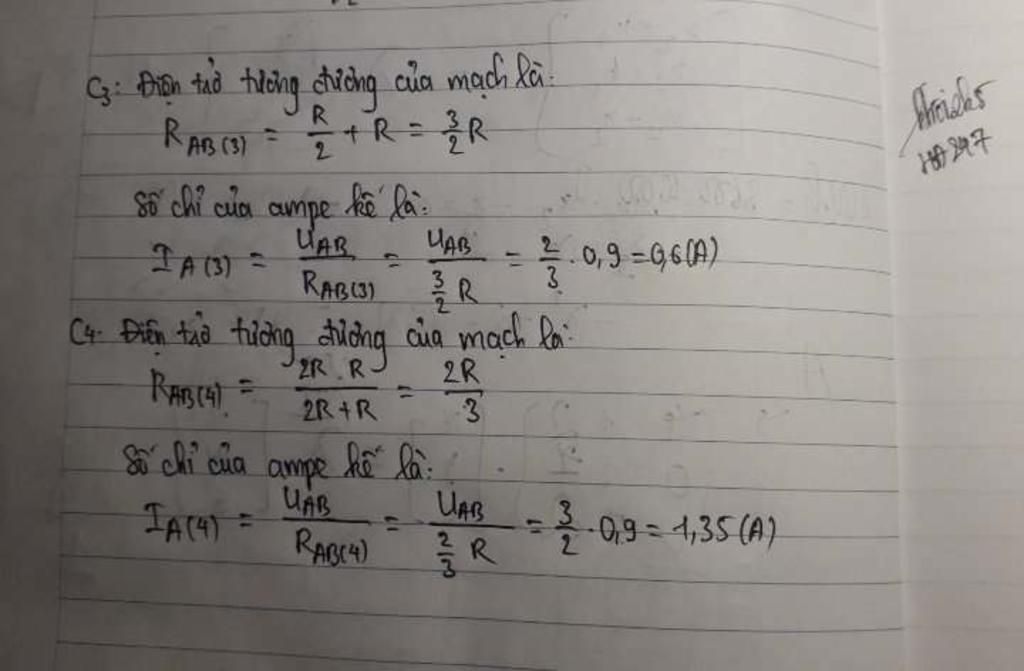 C₃: Điện trở tương đương của mạch là:
R AB(3) = R/2 + R = 3/2 R
Số chỉ của ampe kế là:
I A(3) = UAB/RAB(3) = UAB/(3/2 R) = 2/3 . 0,9 = 0,6(A)
C₄. Điện trở tương đương của mạch là:
RAB(4) = 2R.R/2R+R = 2R/3
Số chỉ của ampe kế là:
IA(4) = UAB/RAB(4) = UAB/(2/3 R) = 3/2 . 0,9 = 1,35(A)